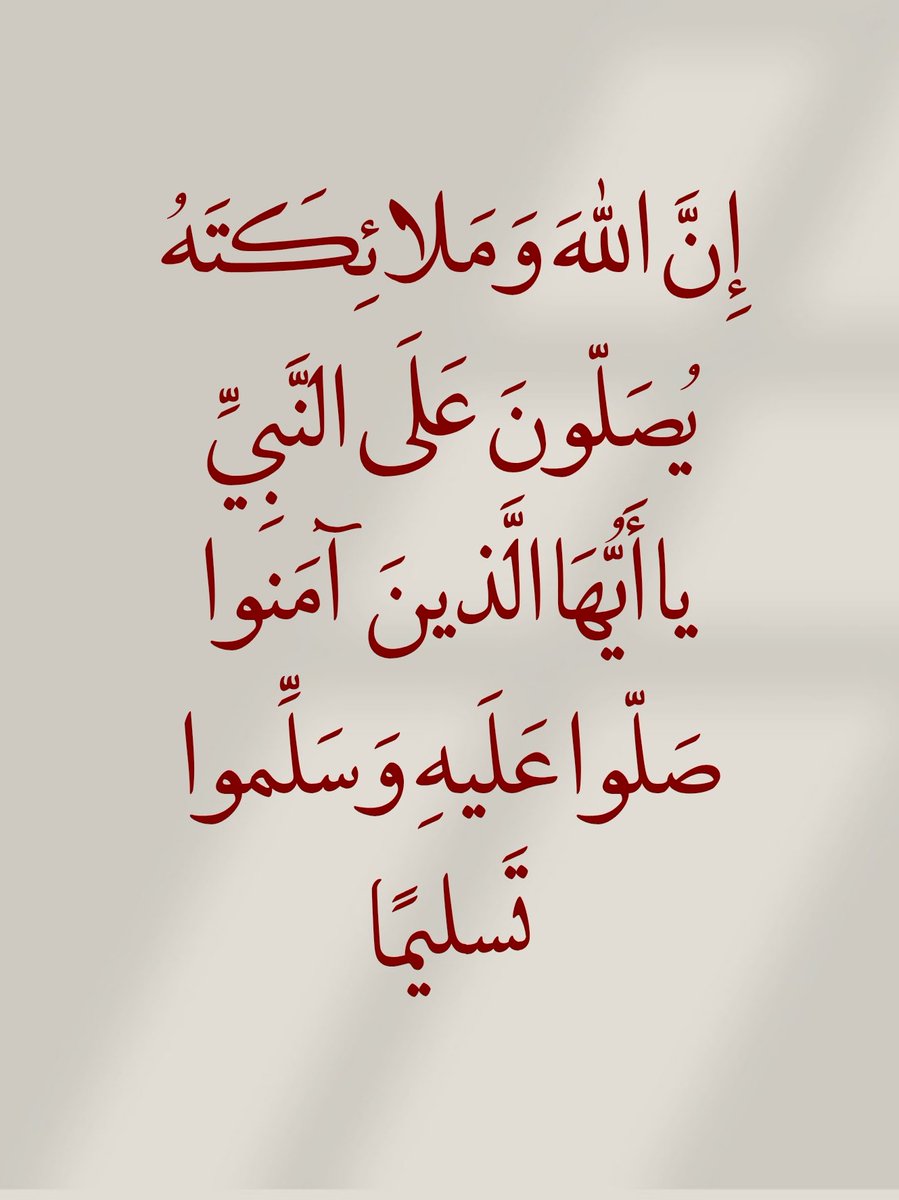 إِنَّ اللَّهَ وَمَلائِكَتَهُ
يُصَلّونَ عَلَى النَّبِيِّ
يا أَيُّهَا الَّذينَ آمَنوا
صَلّوا عَلَيهِ وَسَلِّموا
تَسليمًا